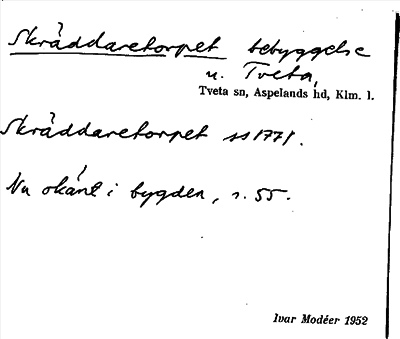 Skräddaretorpet bebyggelse
u. Tveta,
Tveta sn, Aspelands hd, Klm. l.
Skräddaretorpet ss 1771.
Nu okänt i bygden, s. 55.
Ivar Modéer 1952